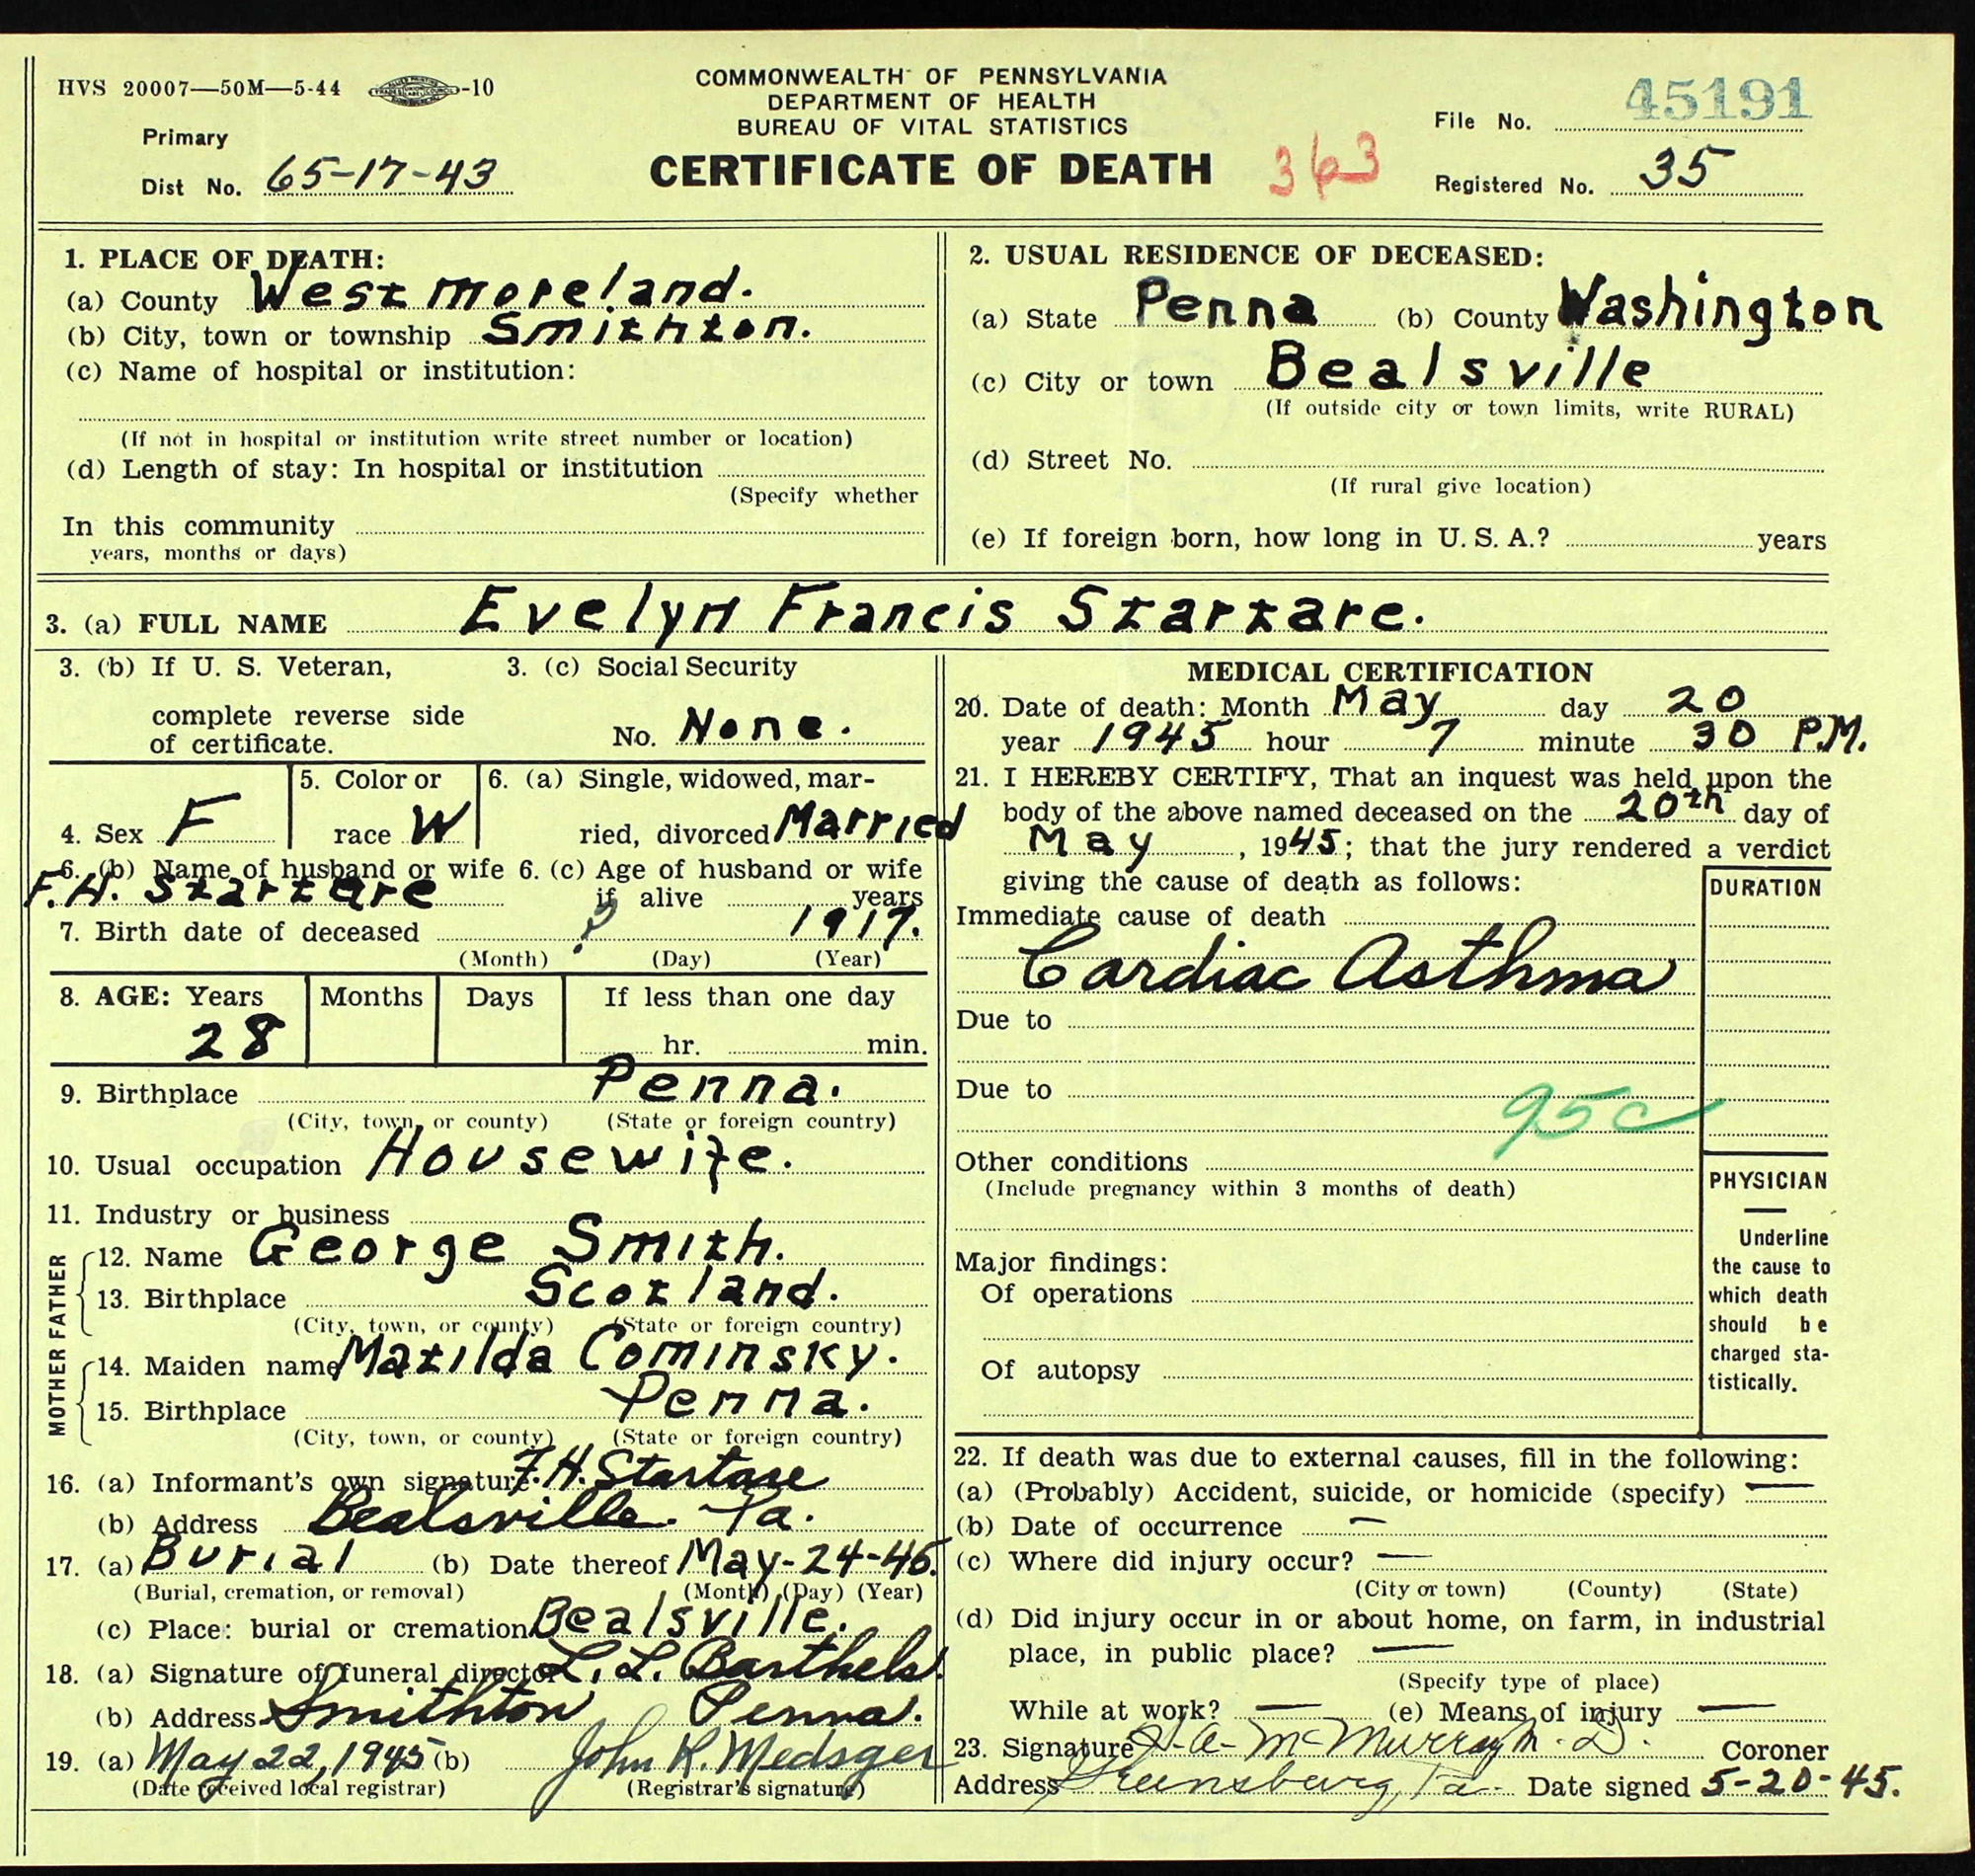 HVS 20007—50M—5-44 -10
COMMONWEALTH OF PENNSYLVANIA
DEPARTMENT OF HEALTH
BUREAU OF VITAL STATISTICS
CERTIFICATE OF DEATH
363
Primary
Dist No. 65-17-43
File No. 45191
Registered No. 35
1. PLACE OF DEATH:
(a) County Westmoreland.
(b) City, town or township Smithton.
(c) Name of hospital or institution:
(If not in hospital or institution write street number or location)
(d) Length of stay: In hospital or institution
(Specify whether
In this community
years, months or days)
2. USUAL RESIDENCE OF DECEASED:
(a) State Penna (b) County Washington
(c) City or town Bealsville
(If outside city or town limits, write RURAL)
(d) Street No.
(If rural give location)
(e) If foreign born, how long in U. S. A.? years
3. (a) FULL NAME Evelyn Francis Startare.
3. (b) If U. S. Veteran,
complete reverse side
of certificate.
3. (c) Social Security
No. None.
4. Sex F
5. Color or
race W
6. (a) Single, widowed, mar-
ried, divorced Married
6. (b) Name of husband or wife
F.H. Startare
6. (c) Age of husband or wife
if alive years
7. Birth date of deceased ? 1917.
(Month) (Day) (Year)
8. AGE: Years Months Days If less than one day
28 hr. min.
9. Birthplace Penna.
(City, town, or county) (State or foreign country)
10. Usual occupation Housewife.
11. Industry or business
FATHER
12. Name George Smith.
13. Birthplace Scotland.
(City, town, or county) (State or foreign country)
MOTHER
14. Maiden name Matilda Cominsky.
15. Birthplace Penna.
(City, town, or county) (State or foreign country)
16. (a) Informant's own signature F.H. Startare
(b) Address Bealsville. Pa.
17. (a) Burial (b) Date thereof May-24-45.
(Burial, cremation, or removal) (Month) (Day) (Year)
(c) Place: burial or cremation Bealsville.
18. (a) Signature of funeral director L. L. Barthels.
(b) Address Smithton Penna.
19. (a) May 22, 1945 (b) John R. Medsger
(Date received local registrar) (Registrar's signature)
MEDICAL CERTIFICATION
20. Date of death: Month May day 20
year 1945 hour 7 minute 30 P.M.
21. I HEREBY CERTIFY, That an inquest was held upon the
body of the above named deceased on the 20th day of
May, 1945; that the jury rendered a verdict
giving the cause of death as follows:
DURATION
Immediate cause of death
Cardiac Asthma
Due to
Due to
95c
Other conditions
(Include pregnancy within 3 months of death)
Major findings:
Of operations
Of autopsy
PHYSICIAN
Underline
the cause to
which death
should be
charged sta-
tistically.
22. If death was due to external causes, fill in the following:
(a) (Probably) Accident, suicide, or homicide (specify) —
(b) Date of occurrence —
(c) Where did injury occur? —
(City or town) (County) (State)
(d) Did injury occur in or about home, on farm, in industrial
place, in public place? —
(Specify type of place)
While at work? — (e) Means of injury —
23. Signature H. A. McMurray M. D. Coroner
Address Greensburg, Pa. Date signed 5-20-45.